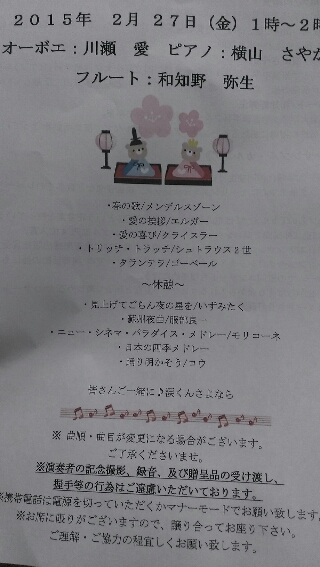 ２０１５年　２月　２７日（金）１時～２時
オーボエ：川瀬　愛　ピアノ：横山　さやか
フルート：和知野　弥生
・春の歌/メンデルスゾーン
・愛の挨拶/エルガー
・愛の喜び/クライスラー
・トリッチ・トラッチ/シュトラウス２世
・タランテラ/ゴーベール
～休憩～
・見上げてごらん夜の星を/いずみたく
・蘇州夜曲/服部良一
・ニュー・シネマ・パラダイス・メドレー/モリコーネ
・日本の四季メドレー
・踊り明かそう/ロウ
皆さんご一緒に♪涙くんさよなら
※ 曲順・曲目が変更になる場合がございます。
ご了承くださいませ。
※演奏者の記念撮影、録音、及び贈呈品の受け渡し、
握手等の行為はご遠慮いただいております。
※携帯電話は電源を切っていただくかマナーモードでお願い致します。
※お席に限りがございますので、譲り合ってお座り下さい。
ご理解・ご協力の程宜しくお願い致します。